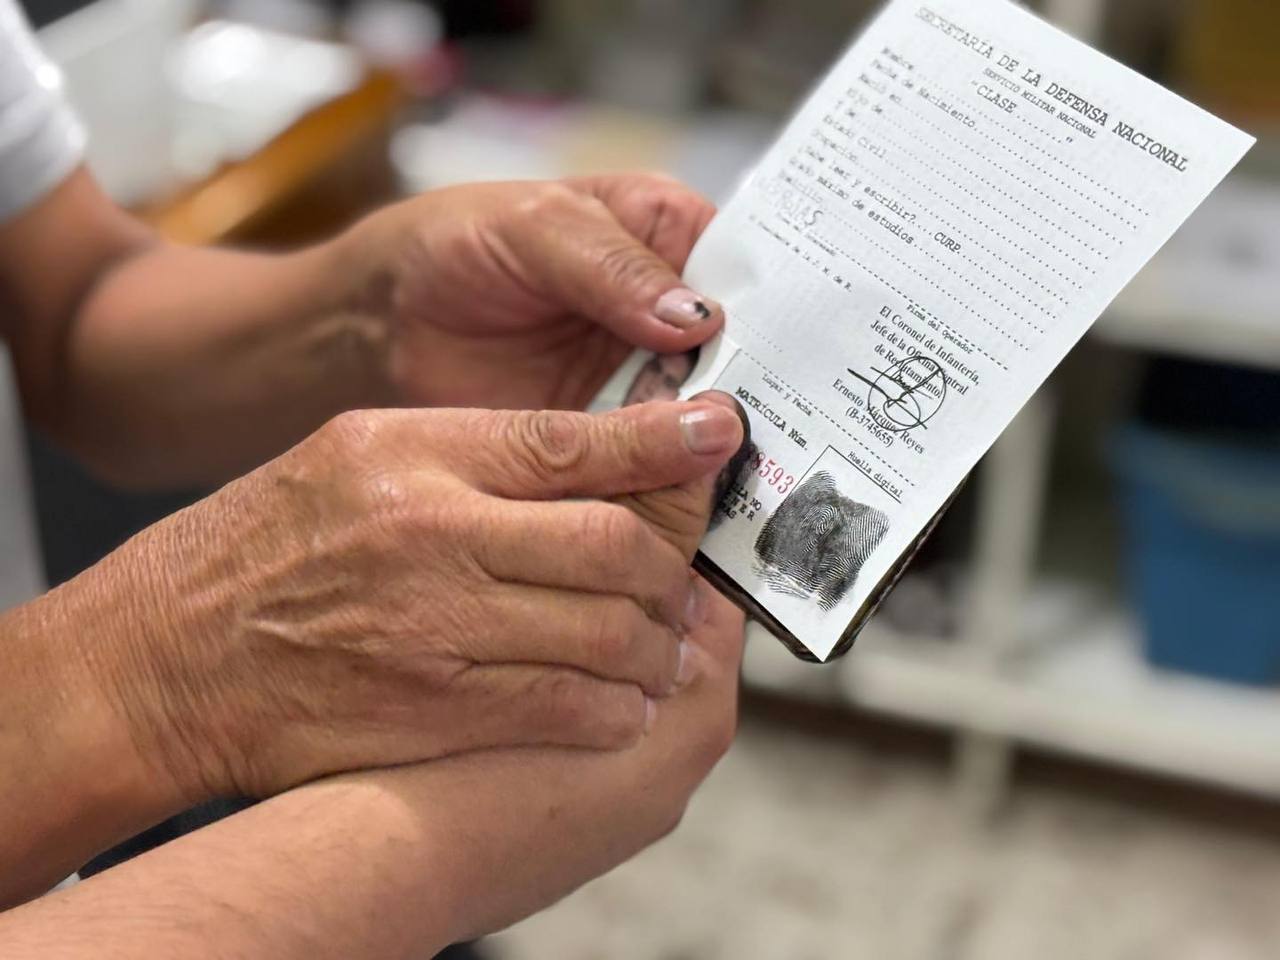 SECRETARÍA DE LA DEFENSA NACIONAL
SERVICIO MILITAR NACIONAL
"CLASE ........"
Nombre
Fecha de Nacimiento
Nació en
Hijo de
Y de
Estado Civil
Ocupación
¿Sabe leer y escribir? CURP
Grado máximo de estudios
Domicilio
Firma del Operador
El Coronel de Infantería,
Jefe de la Oficina Central
de Reclutamiento
Ernesto Márquez Reyes
(B-3745655)
Lugar y Fecha
MATRÍCULA Núm.
8593
Huella digital